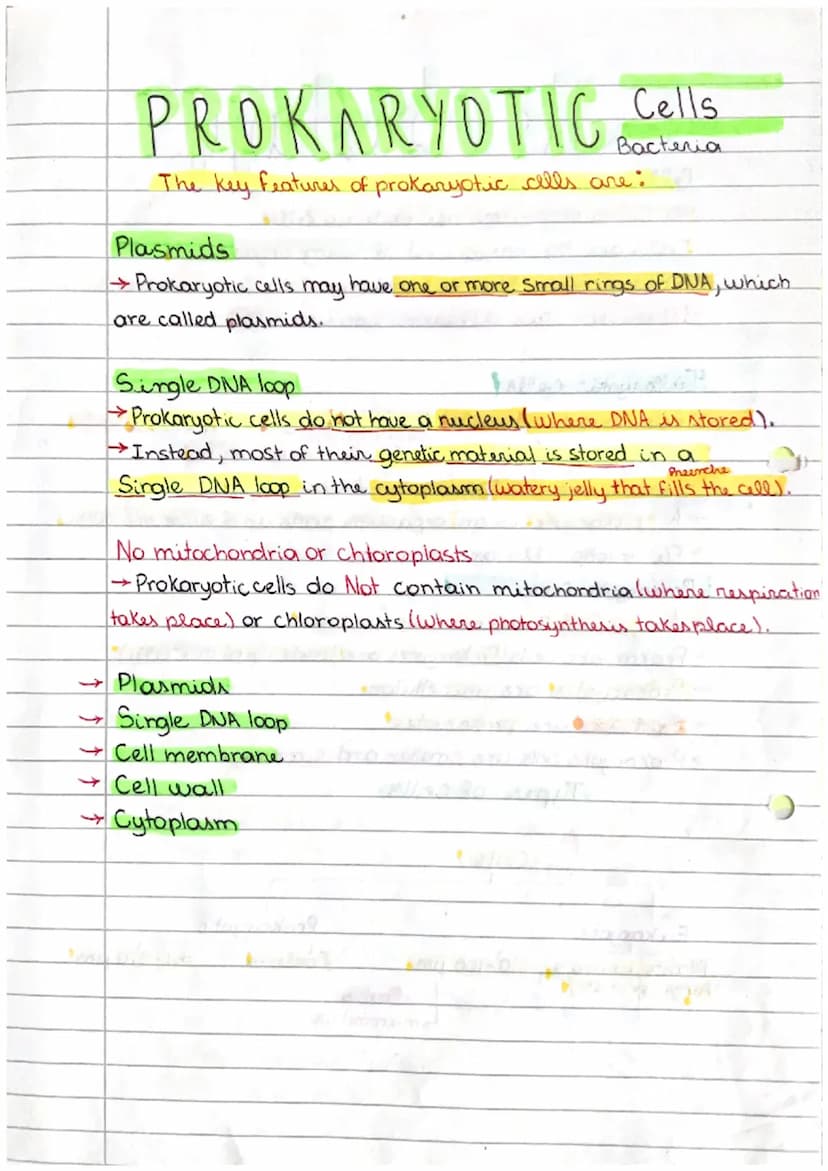 PROKARYOTIC Cells
Bacteria
The key features of prokaryotic cells are:
Plasmids
→ Prokaryotic cells may have one or more small rings of DNA, which
are called plasmids.
Single DNA loop
→ Prokaryotic cells do not have a nucleus (where DNA is stored).
→ Instead, most of their genetic material is stored in a
Single DNA loop in the cytoplasm (watery jelly that fills the cell).
No mitochondria or chloroplasts
→ Prokaryotic cells do Not contain mitochondria (where respiration
takes place) or chloroplasts (where photosynthesis takes place).
→ Plasmids
→ Single DNA loop
→ Cell membrane
→ Cell wall
→ Cytoplasm